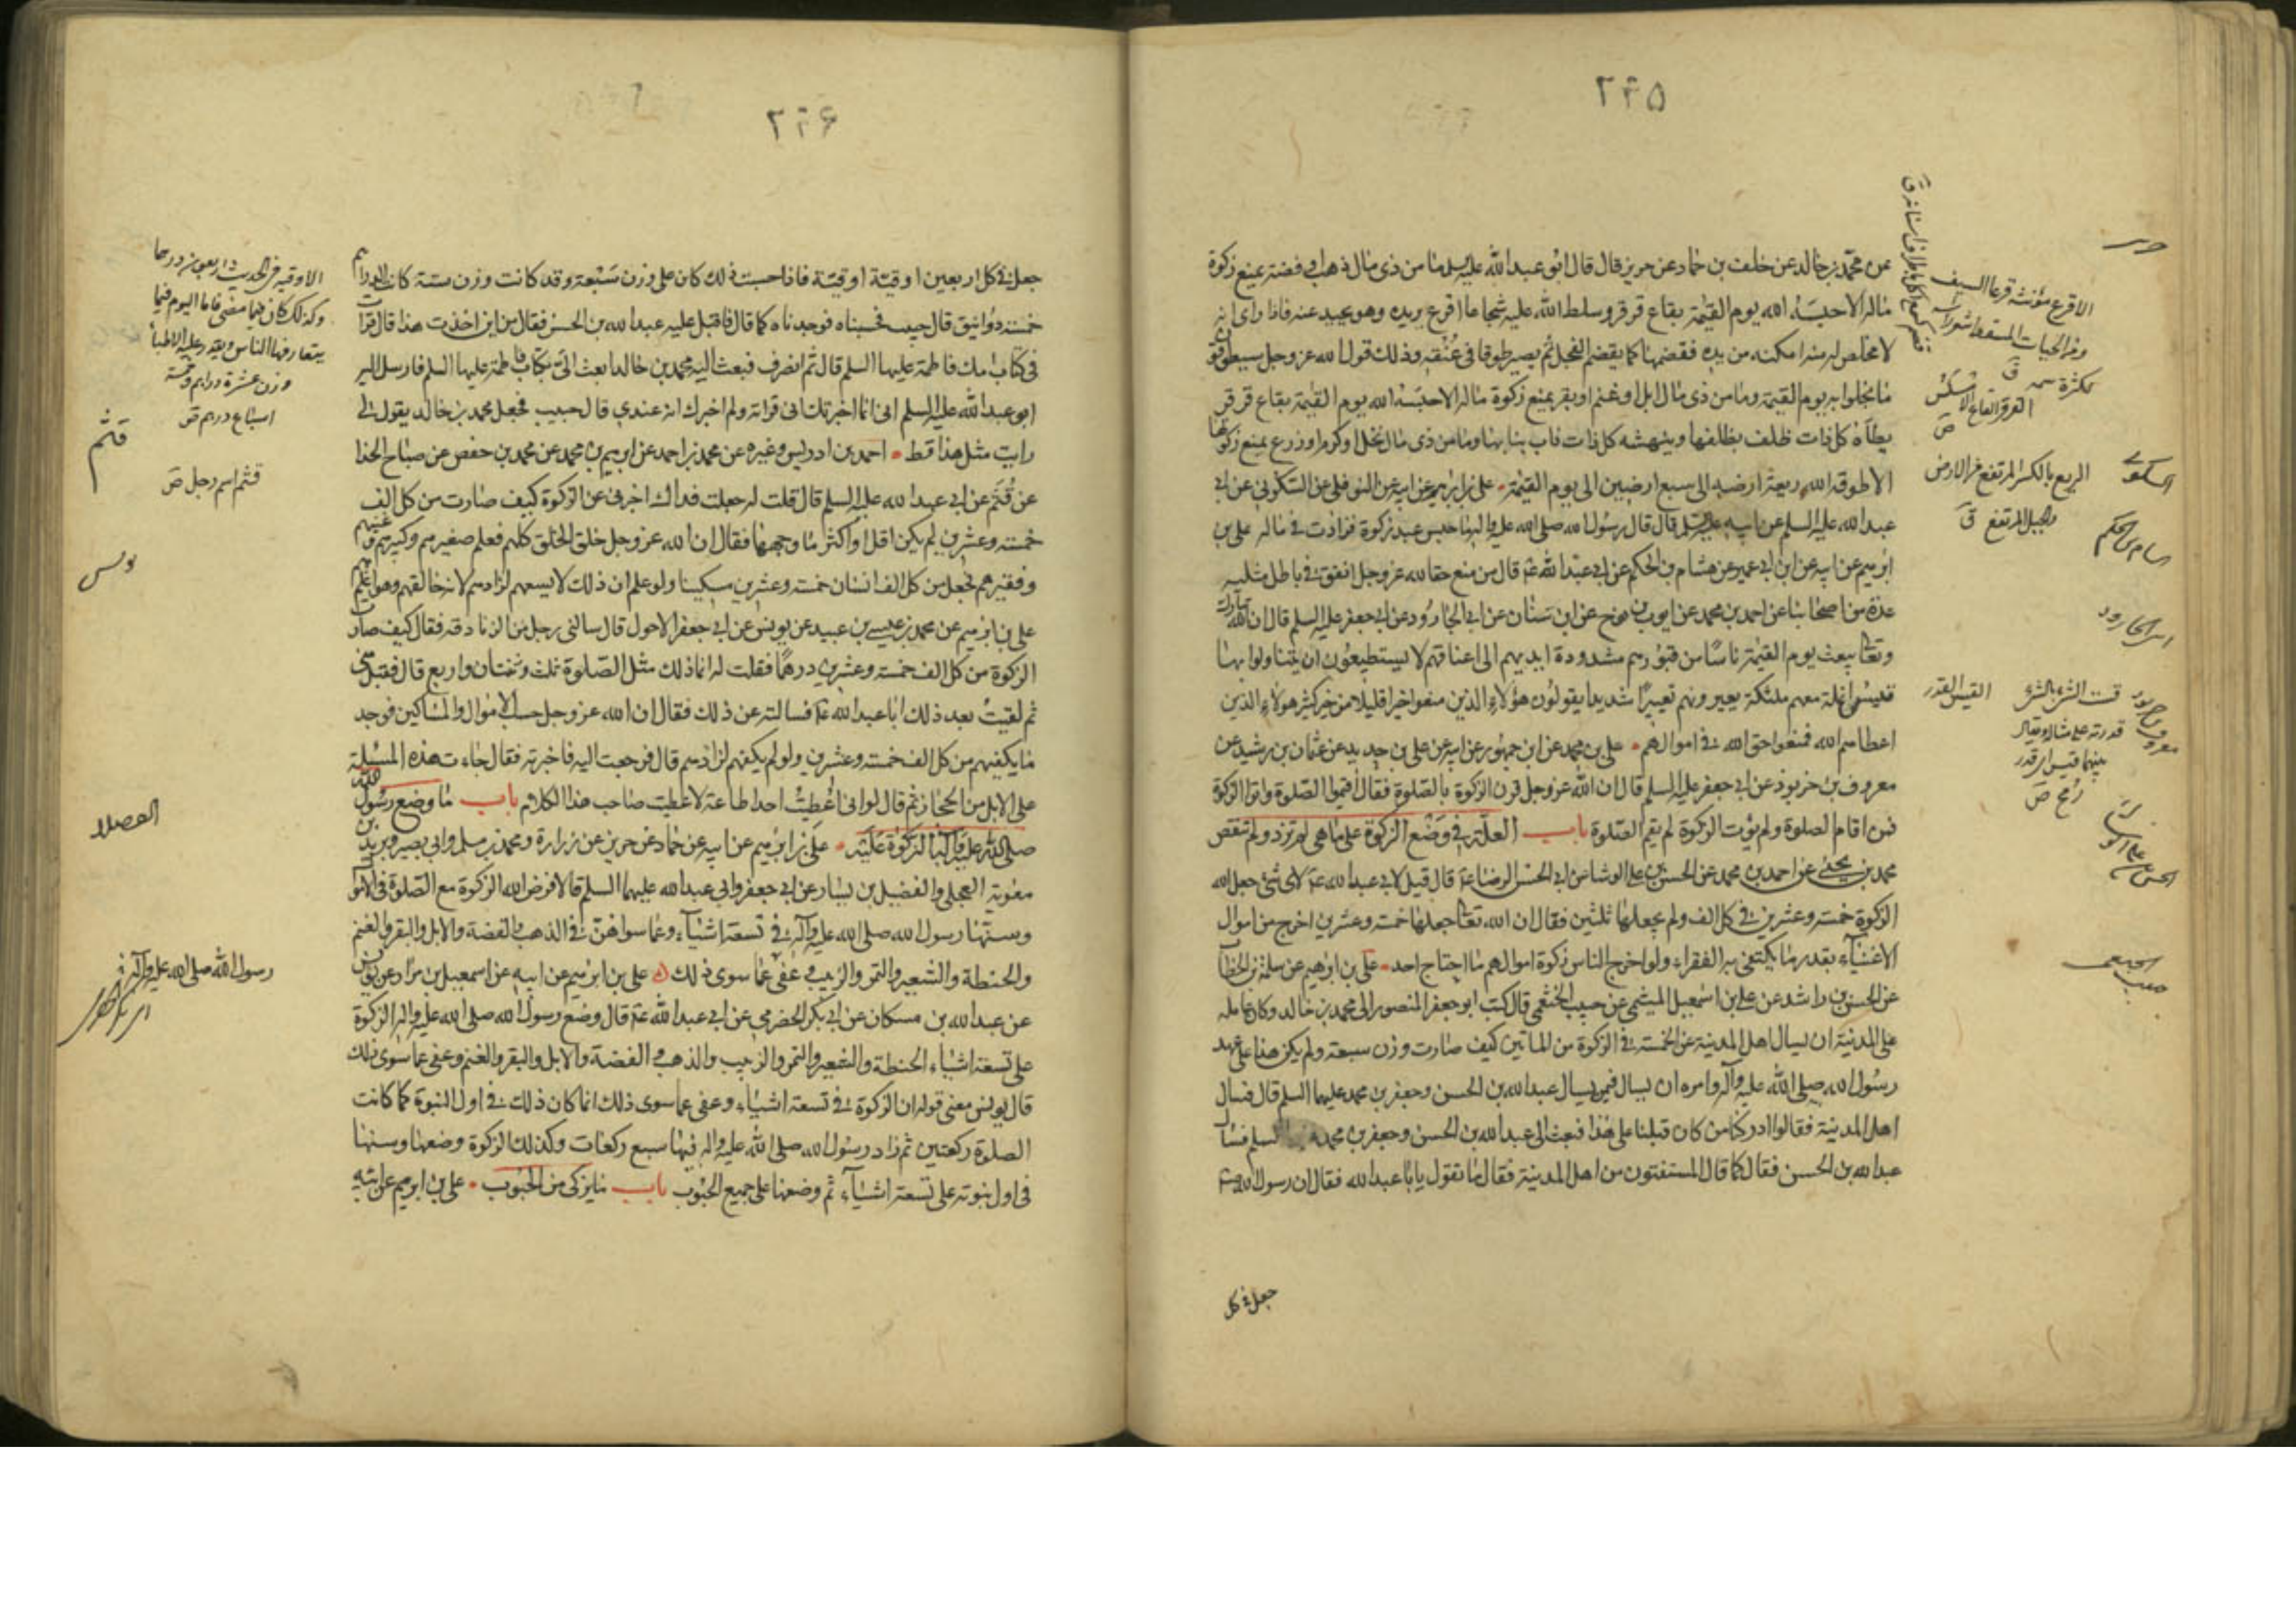 ٢٢٥
عن محمد بن خالد عن خلف بن حماد عن حريز قال قال ابو عبد الله عليه السلم ما من ذى مال ذهب او فضة يمنع زكوة
ماله الا حبسه الله يوم القيمة بقاع قرقر وسلط الله عليه شجاعا اقرع يريده وهو يحيد عنه فاذا راى انه
لا مخلص له منه امكنه من يده فقضمها كما يقضم الفجل ثم يصير طوقا فى عنقه وذلك قول الله عز وجل سيطوقون
ما بخلوا به يوم القيمة وما من ذى مال ابل او غنم او بقر يمنع زكوة ماله الا حبسه الله يوم القيمة بقاع قرقر
يطأه كل ذات ظلف بظلفها وينهشه كل ذات ناب بنابها وما من ذى مال نخل او كرم او زرع يمنع زكوتها
الا طوقه الله ريعة ارضه الى سبع ارضين الى يوم القيمة علي بن ابرهيم عن ابيه عن النوفلى عن السكونى عن ابى
عبد الله عليه السلم عن ابيه عليه السلم قال قال رسول الله صلى الله عليه واله ما حبس عبد زكوة فزادت فى ماله علي بن
ابرهيم عن ابيه عن ابن ابى عمير عن هشام بن الحكم عن ابى عبد الله ع قال من منع حقا لله عز وجل انفق فى باطل مثليه
عدة من اصحابنا عن احمد بن محمد عن ايوب بن نوح عن ابن سنان عن ابى الجارود عن ابى جعفر عليه السلم قال ان الله تبارك
وتعا يبعث يوم القيمة ناسا من قبورهم مشدودة ايديهم الى اعناقهم لا يستطيعون ان يتناولوا بها
قيس انملة معهم ملئكة يعيرونهم تعييرا شديدا يقولون هؤلاء الذين منعوا خيرا قليلا من خير كثير هولاء الذين
اعطاهم الله فمنعوا حق الله فى اموالهم علي بن محمد عن ابن جمهور عن ابيه عن علي بن حديد عن عثمان بن رشيد عن
معروف بن خربوذ عن ابى جعفر عليه السلم قال ان الله عز وجل قرن الزكوة بالصلوة فقال اقيموا الصلوة واتوا الزكوة
فمن اقام الصلوة ولم يؤت الزكوة لم يقم الصلوة باب العلة فى وضع الزكوة على ما هى لم تزد ولم تنقص
محمد بن يحيى عن احمد بن محمد عن الحسن بن علي الوشا عن ابى الحسن الرضا ع قال قيل لابى عبد الله ع لاى شئ جعل الله
الزكوة خمسة وعشرين فى كل الف ولم يجعلها ثلثين فقال ان الله تعا جعلها خمسة وعشرين اخرج من اموال
الاغنياء بقدر ما يكتفى به الفقراء ولو اخرج الناس زكوة اموالهم ما احتاج احد علي بن ابرهيم عن سلمة بن الخطاب
عن الحسن بن راشد عن علي بن اسمعيل الميثمى عن حبيب الخثعمى قال كتب ابو جعفر المنصور الى محمد بن خالد وكان عامله
على المدينة ان يسال اهل المدينة عن الخمسة فى الزكوة من المائتين كيف صارت وزن سبعة ولم يكن هذا على عهد
رسول الله صلى الله عليه وآله وامره ان يسال فيمن يسال عبد الله بن الحسن وجعفر بن محمد عليهما السلم قال فسال
اهل المدينة فقالوا ادركنا من كان قبلنا على هذا فبعث الى عبد الله بن الحسن وجعفر بن محمد السلم فسال
عبد الله بن الحسن فقال كما قال المستفتون من اهل المدينة فقال ما تقول يابا عبد الله فقال ان رسول الله
جعل فى كل
السكونى
هشام بن الحكم
الريع بالكسر المرتفع من الارض
والجبل المرتفع ق
قست الشئ بالشئ
قدرته على مثاله ويقال
بينهما قيس رمح اى قدر
رمح ص
٢٢٦
جعل فى كل اربعين اوقية اوقية فاذا حسبت ذلك كان على وزن سبعة وقد كانت وزن ستة كانت الدراهم
خمسة دوانيق قال حبيب فحسبناه فوجدناه كما قال فاقبل عليه عبد الله بن الحسن فقال من اين اخذت هذا قال قرات
فى كتاب امك فاطمة عليها السلم قال ثم انصرف فبعث اليه محمد بن خالد ابعث الى بكتاب فاطمة عليها السلم فارسل اليه
ابو عبد الله عليه السلم انى انما اخبرتك انى قراته ولم اخبرك انه عندى قال حبيب فجعل محمد بن خالد يقول لى
رايت مثل هذا قط احمد بن ادريس وغيره عن محمد بن احمد عن ابرهيم بن محمد عن محمد بن حفص عن صباح الحذا
عن قثم عن ابى عبد الله عليه السلم قال قلت له جعلت فداك اخبرنى عن الزكوة كيف صارت من كل الف
خمسة وعشرين لم يكن اقل او اكثر ما وجهها فقال ان الله عز وجل خلق الخلق كلهم فعلم صغيرهم وكبيرهم وغنيهم
وفقيرهم فجعل من كل الف انسان خمسة وعشرين مسكينا ولو علم ان ذلك لا يسعهم لزادهم لانه خالقهم وهو اعلم بهم
علي بن ابرهيم عن محمد بن عيسى بن عبيد عن يونس عن ابى جعفر الاحول قال سالنى رجل من الزنادقة فقال كيف صارت
الزكوة من كل الف خمسة وعشرين درهما فقلت له انما ذلك مثل الصلوة ثلث وثنتان واربع قال فقبل منى
ثم لقيت بعد ذلك ابا عبد الله ع فسالته عن ذلك فقال ان الله عز وجل حسب الاموال والمساكين فوجد
ما يكفيهم من كل الف خمسة وعشرين ولو لم يكفهم لزادهم قال فرجعت اليه فاخبرته فقال جاءت هذه المسئلة
على الابل من الحجاز ثم قال لو انى اعطيت احدا طاعة لاعطيت صاحب هذا الكلام باب ما وضع رسول الله
صلى الله عليه وآله الزكوة عليه علي بن ابرهيم عن ابيه عن حماد عن حريز عن زرارة ومحمد بن مسلم وابى بصير وبريد بن
معوية العجلى والفضيل بن يسار عن ابى جعفر وابى عبد الله عليهما السلم قالا فرض الله الزكوة مع الصلوة فى الاموال
وسنها رسول الله صلى الله عليه وآله فى تسعة اشياء وعما سواهن فى الذهب والفضة والابل والبقر والغنم
والحنطة والشعير والتمر والزبيب وعفى عما سوى ذلك علي بن ابرهيم عن ابيه عن اسمعيل بن مرار عن يونس
عن عبد الله بن مسكان عن ابى بكر الحضرمى عن ابى عبد الله ع قال وضع رسول الله صلى الله عليه واله الزكوة
على تسعة اشياء الحنطة والشعير والتمر والزبيب والذهب والفضة والابل والبقر والغنم وعفى عما سوى ذلك
قال يونس معنى قوله ان الزكوة فى تسعة اشياء وعفى عما سوى ذلك انما كان ذلك فى اول النبوة كما كانت
الصلوة ركعتين ثم زاد رسول الله صلى الله عليه واله فيها سبع ركعات وكذلك الزكوة وضعها وسنها
فى اول نبوته على تسعة اشياء ثم وضعها على جميع الحبوب باب ما يزكى من الحبوب علي بن ابرهيم عن ابيه
الاوقية فى الحديث اربعون درهما
وكذلك كان فيما مضى فاما اليوم فيما
يتعارفها الناس ويقدر عليه الاطباء
وزن عشرة دراهم وخمسة
اسباع درهم ص
قثم
قثم اسم رجل ص
يونس
رسول الله صلى الله عليه وآله